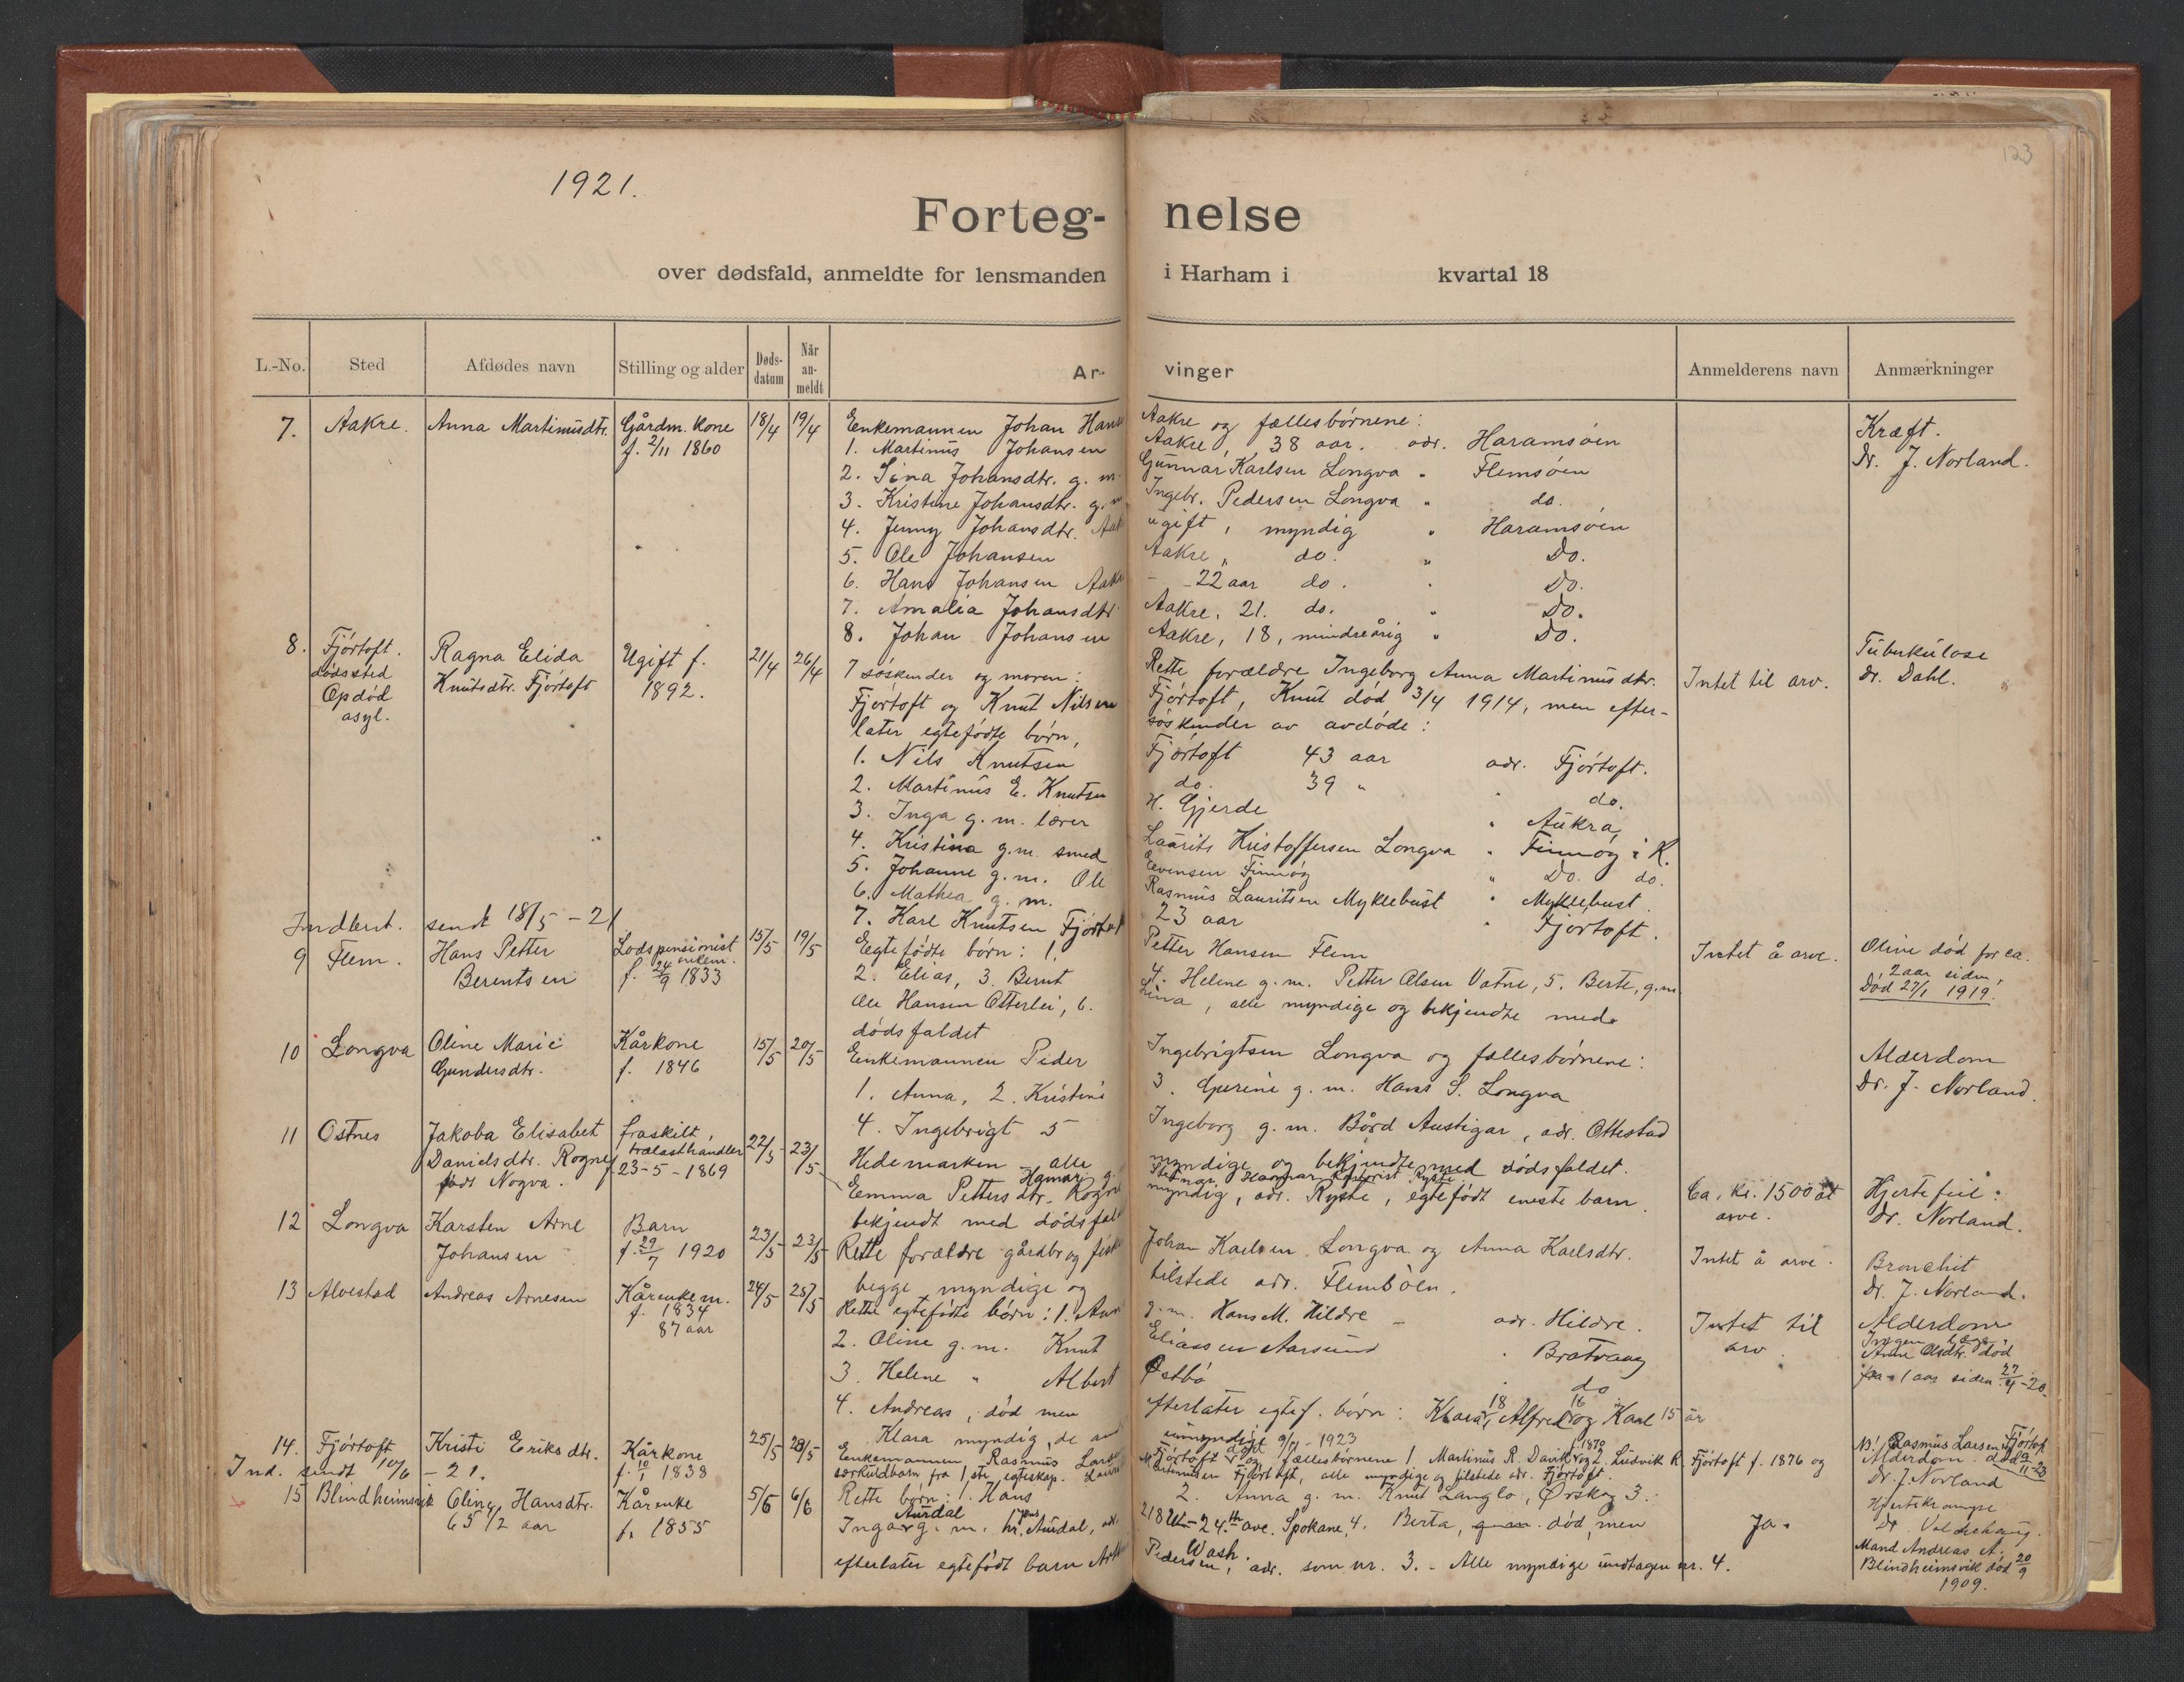 123
1921.
Forteg- nelse
over dødsfald, anmeldte for lensmanden i Harham i kvartal 18
L.-No. Sted Afdødes navn Stilling og alder Døds-datum Når an-meldt Ar- vinger Anmelderens navn Anmærkninger
7. Aakre. Anna Martinusdtr. Gårdm. kone 18/4 19/4 Enkemannen Johan Hans Aakre og fællesbørnene: Kræft.
f. 2/11 1860 1. Martinus Johansen Aakre, 38 aar. adr. Haramsøen Dr. J. Norland.
2. Sina Johansdtr. g. m. Gunnar Karlsen Longva " Flemsøen
3. Kristine Johansdtr. g. m Ingebr. Pedersen Longva " do.
4. Jenny Johansdtr. Aak ugift, myndig " Haramsøen
5. Ole Johansen Aakre, do. " Do.
6. Hans Johansen Aakr - 22 aar do. " Do.
7. Amalia Johansdtr Aakre, 21. do. " Do.
8. Johan Johansen Aakre, 18, mindreårig " Do.
8. Fjørtoft. Ragna Elida Ugift f. 21/4 26/4 7 søskender og moren: Rette forældre Ingeborg Anna Martinusdtr. Intet til arv. Tuberkulose
dødssted Knutsdtr. Fjørtoft 1892. Fjørtoft og Knut Nilsen Fjørtoft, Knut død 3/4 1914, men efter- Dr. Dahl.
Opdød later egtefødte børn, søskender av avdøde:
asyl. 1. Nils Knutsen Fjørtoft 43 aar adr. Fjørtoft.
2. Martinus E. Knutsen do. 39 " " do.
3. Inga g. m. lærer H. Gjerde " Aukra
4. Kristina g. m. smed Laurits Kristoffersen Longva " Finnøy i K.
5. Johanne g. m. Ole Evensen Finnøy " Do. do.
6. Mathea g. m. Rasmus Lauritsen Myklebust " Myklebust
7. Karl Knutsen Fjørtoft 23 aar " Fjørtoft.
Indbert. sendt 18/5 - 21
9 Flem. Hans Petter Lodspensionist 15/5 19/5 Egtefødte børn: 1. Petter Hansen Flem Intet å arve. Oline død for ca.
Berentsen enkem. f. 24/9 1833 2. Elias, 3. Bernt 4. Helene g. m. Petter Olsen Vatne, 5. Berte, g.m. 2 aar siden.
Ole Hansen Otterlei, 6. Lina, alle myndige og bekjendte med Død 27/1 1919.
dødsfaldet
10 Longva Oline Marie Kårkone 15/5 20/5 Enkemannen Peder Ingebrigtsen Longva og fællesbørnene: Alderdom
Gundersdtr. f. 1846 1. Anna, 2. Kristine 3. Gurine g. m. Hans S. Longva Dr. J. Norland.
4. Ingebrigt 5 Ingeborg g. m. Bård Austigar, adr. Ottestad
Hedemarken alle myndige og bekjendte med dødsfaldet.
11 Ostnes Jakoba Elisabet fraskilt, 22/5 23/5 Emma Pettersdtr. Rogne myndig, adr. Ryste, egtefødt eneste barn. Ca. kr. 1500 at Hjertefeil.
Danielsdtr. Rogne trælasthandler bekjendt med dødsfal arve. Dr. Norland.
født Nogva. f. 23-5-1869
12 Longva Karsten Arne Barn 23/5 23/5 Rette forældre gårdbr og fisk Johan Karlsen Longva og Anna Karlsdtr. Intet å arve. Bronchit
Johansen f. 29/7 1920 begge myndige og tilstede adr. Flemsøen. Dr. J. Norland.
13 Alvestad Andreas Arnesen Kårenkem. 24/5 25/5 Rette egtefødte børn: 1. Ann g. m. Hans M. Hildre - adr. Hildre. Intet til Alderdom
f. 1834 2. Oline g. m. Knut Eliassen Aarsund " Bratvaag arv. Ingen læge.
87 aar 3. Helene " Albert Østbø " do Anne Olsdtr. død
4. Andreas, død men efterlater egtef. børn: Klara 18, Alfred 16 og Karl 15 år for 1 aar siden 27/4-20.
Klara myndig, de an umyndige
14. Fjørtoft Kristi Eriksdtr. Kårkone 25/5 28/5 Enkemannen Rasmus Larse Fjørtoft død 9/11-1923 og fællesbørnene 1 Martinus R. Davik f. 1872 og 2. Ludvik R. Fjørtoft f. 1876 og Rasmus Larsen Fjørtoft
f. 10/1 1838 særkuldbarn fra 1ste egteskap. Martinusen Fjørtoft, alle myndige og tilstede adr. Fjørtoft. Alderdom. død 9/11-23
Ind. sendt 10/6 - 21. Dr. J. Norland
15 Blindheimsvik Oline Hansdtr. Kårenke 5/6 6/6 Rette børn: 1. Hans Aurdal 2. Anna g. m. Knut Langlo, Ørskog 3. Ja. Hjertekrampe
65 1/2 aar f. 1855 Inga g. m. Aurdal, adr. 218 24.th ave. Spokane, Wash. 4. Berta, død, men Dr.
efterlater egtefødt barn Pedersen, adr. som nr. 3. - Alle myndige undtagen nr. 4. Mand Andreas A.
Blindheimsvik død 20/9
1909.